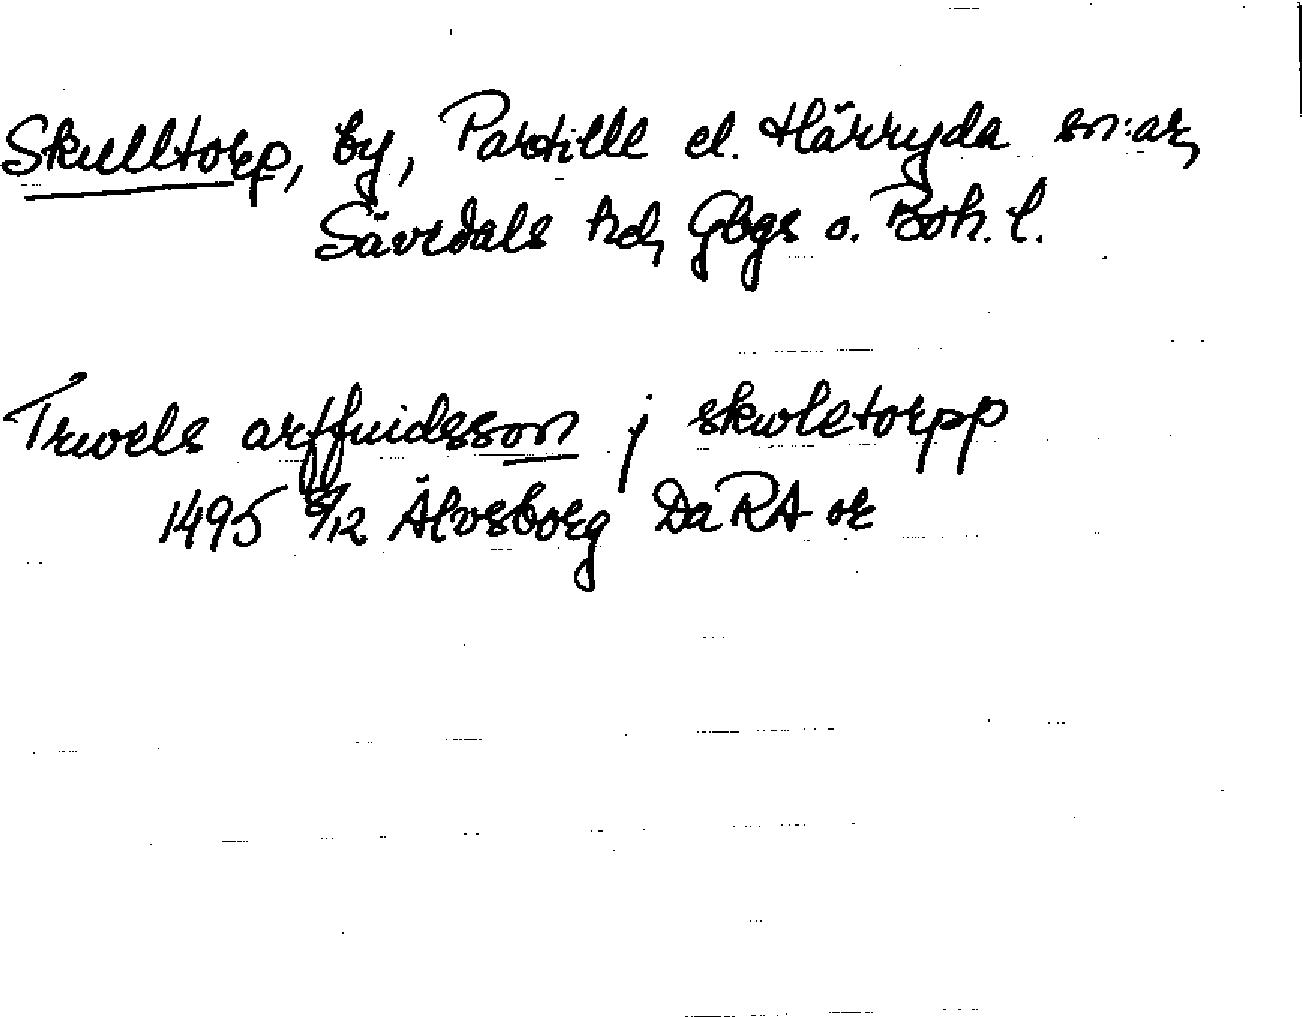 Skulltorp, by, Partille el. Härryda sn:ar,
Sävedals hd, Gbgs o. Boh. l.
Truels arffuidsson j skuletorpp
1495 8/12 Älvsborg DaRA or